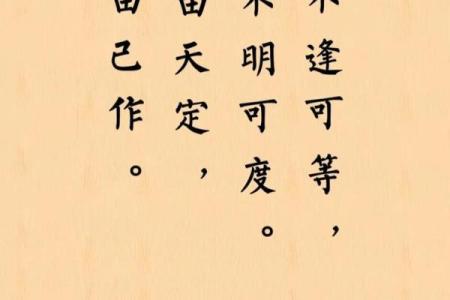 逢可等，
明可度。
由天定，
由己作。